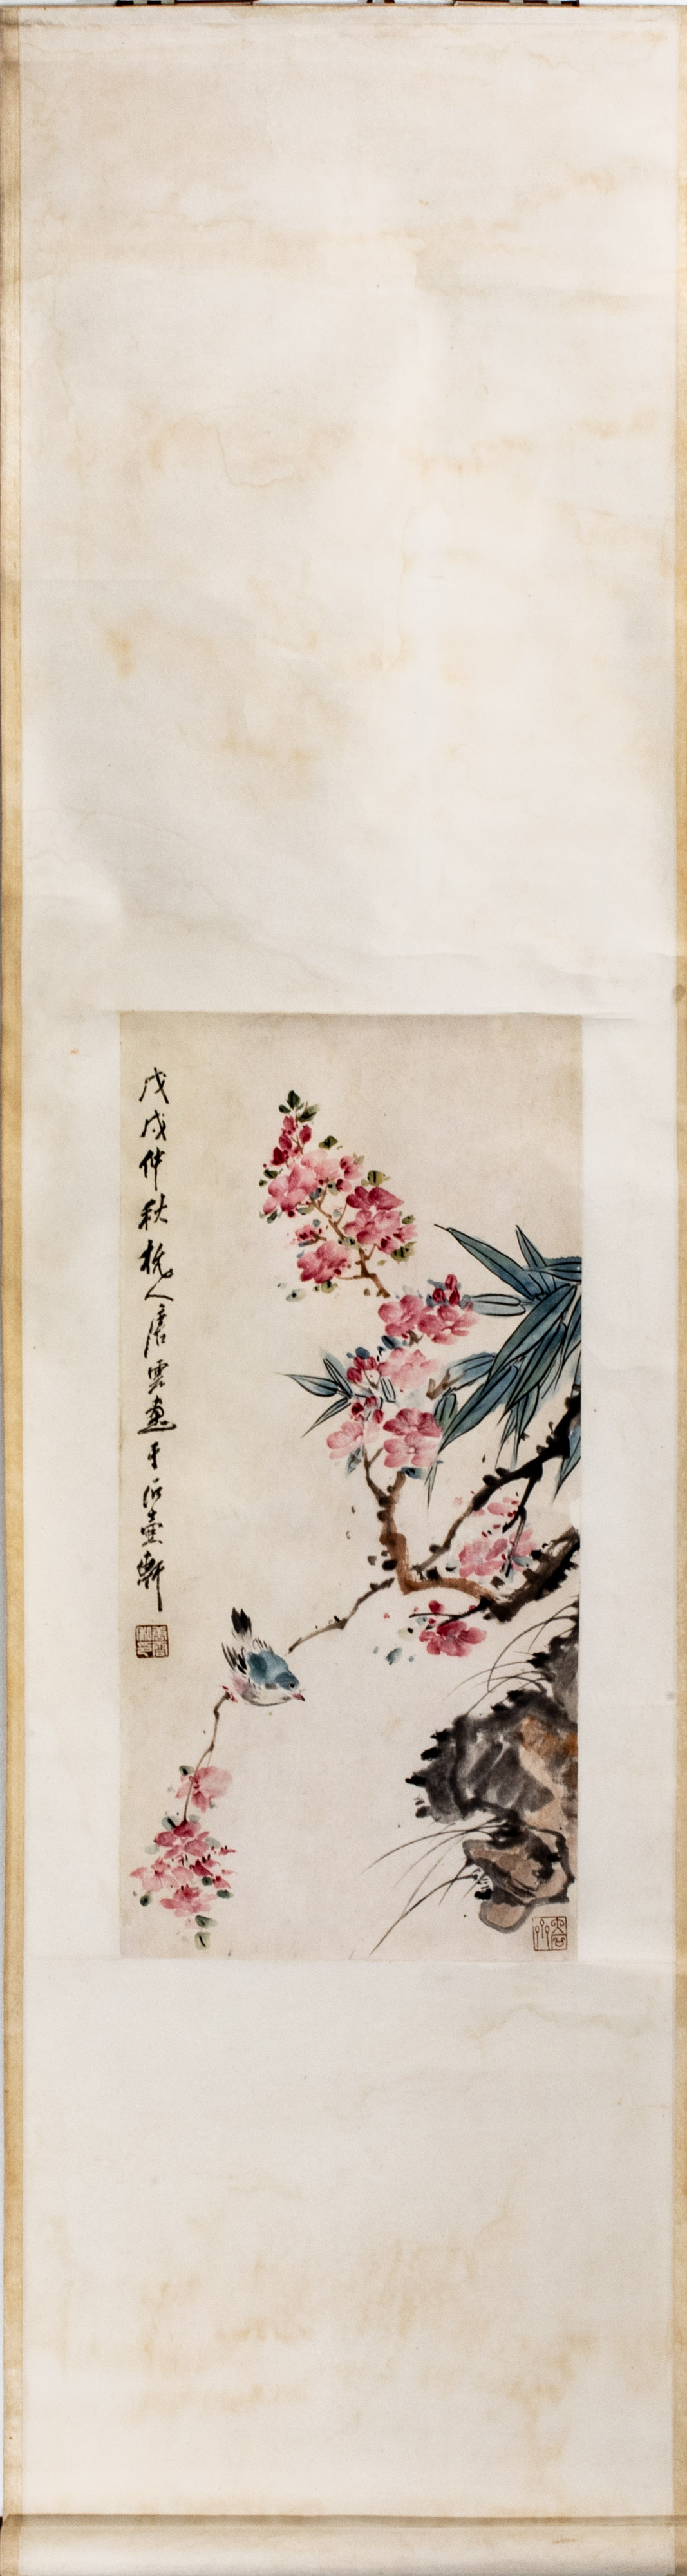 戊戌仲秋杭人唐雲畫于石壺軒